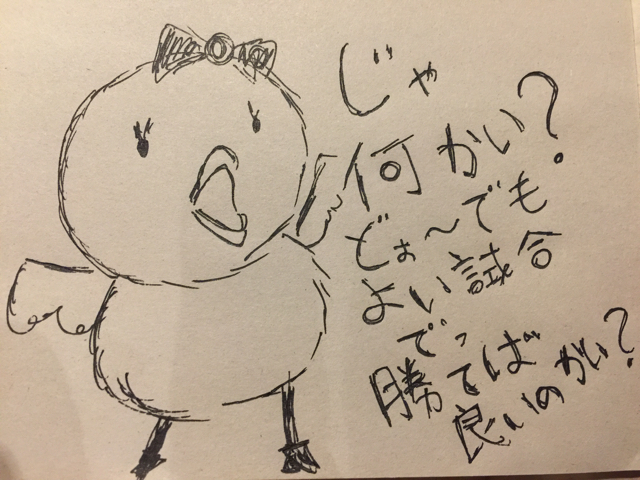 じゃ
何かい?
どぉ～でも
よい試合
でっ
勝てば
良いのかい?